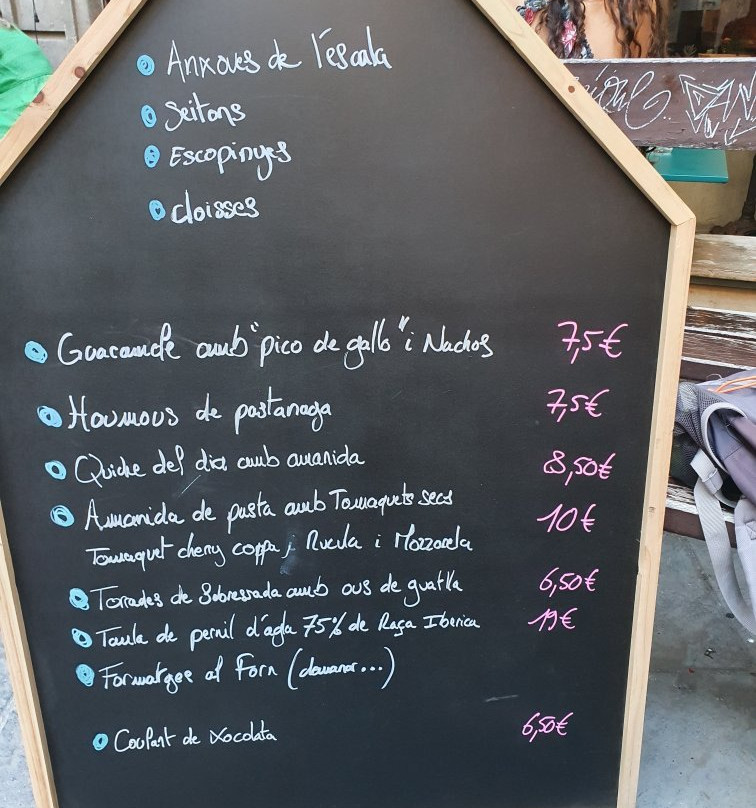 Anxoves de l'escala
Seitons
Escopinyes
cloisses
Guacamole amb "pico de gallo" i Nachos 7,5€
Houmous de pastanaga 7,5€
Quiche del dia amb amanida 8,50€
Amanida de pasta amb Tomaquets secs 10€
Tomaquet cherry coppa, Rucula i Mozzarela
Torrades de Sobressada amb ous de guatlla 6,50€
Taula de pernil d'agla 75% de Raça Iberica 19€
Formatges al Forn (demanar...)
Coulant de xocolata 6,50€